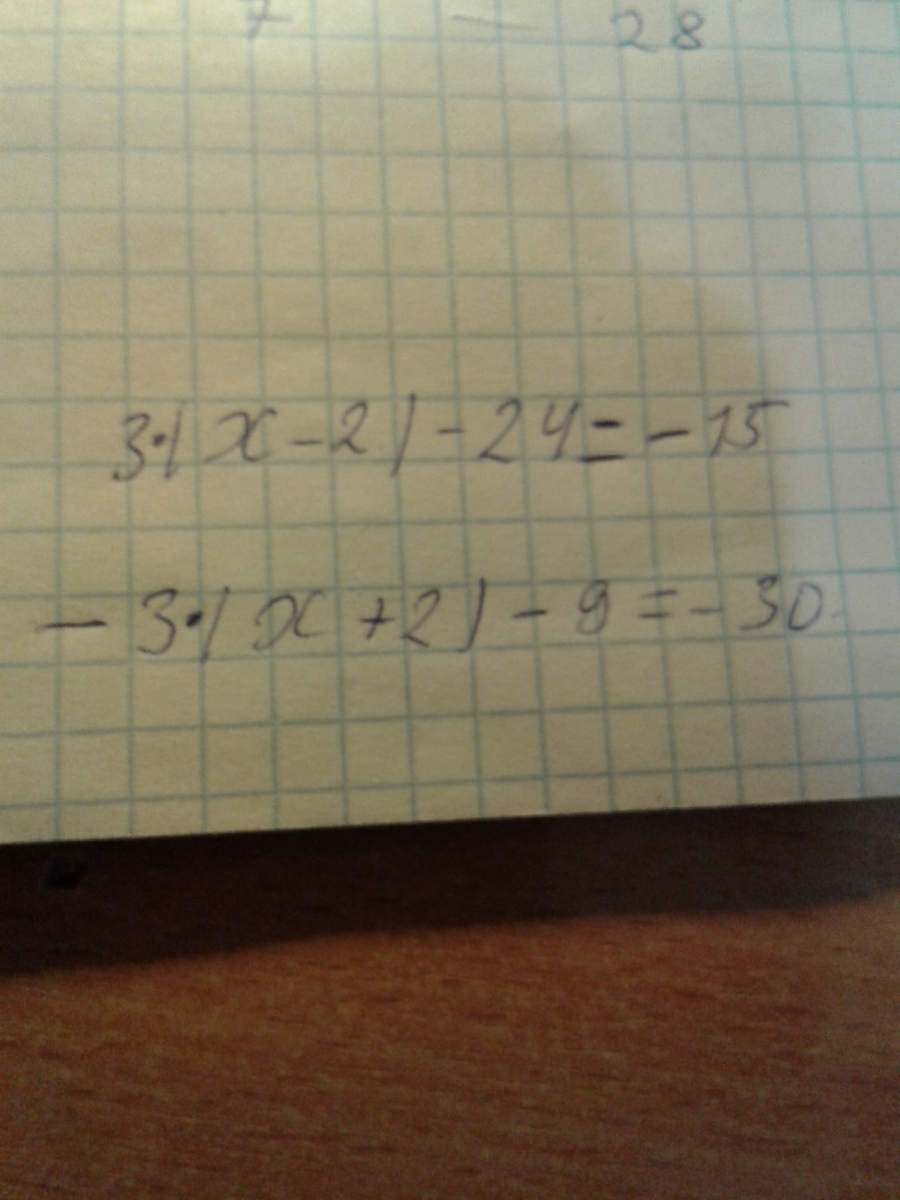 7 — 28
3·|x-2|-24=-15
-3·|x+2|-9=-30